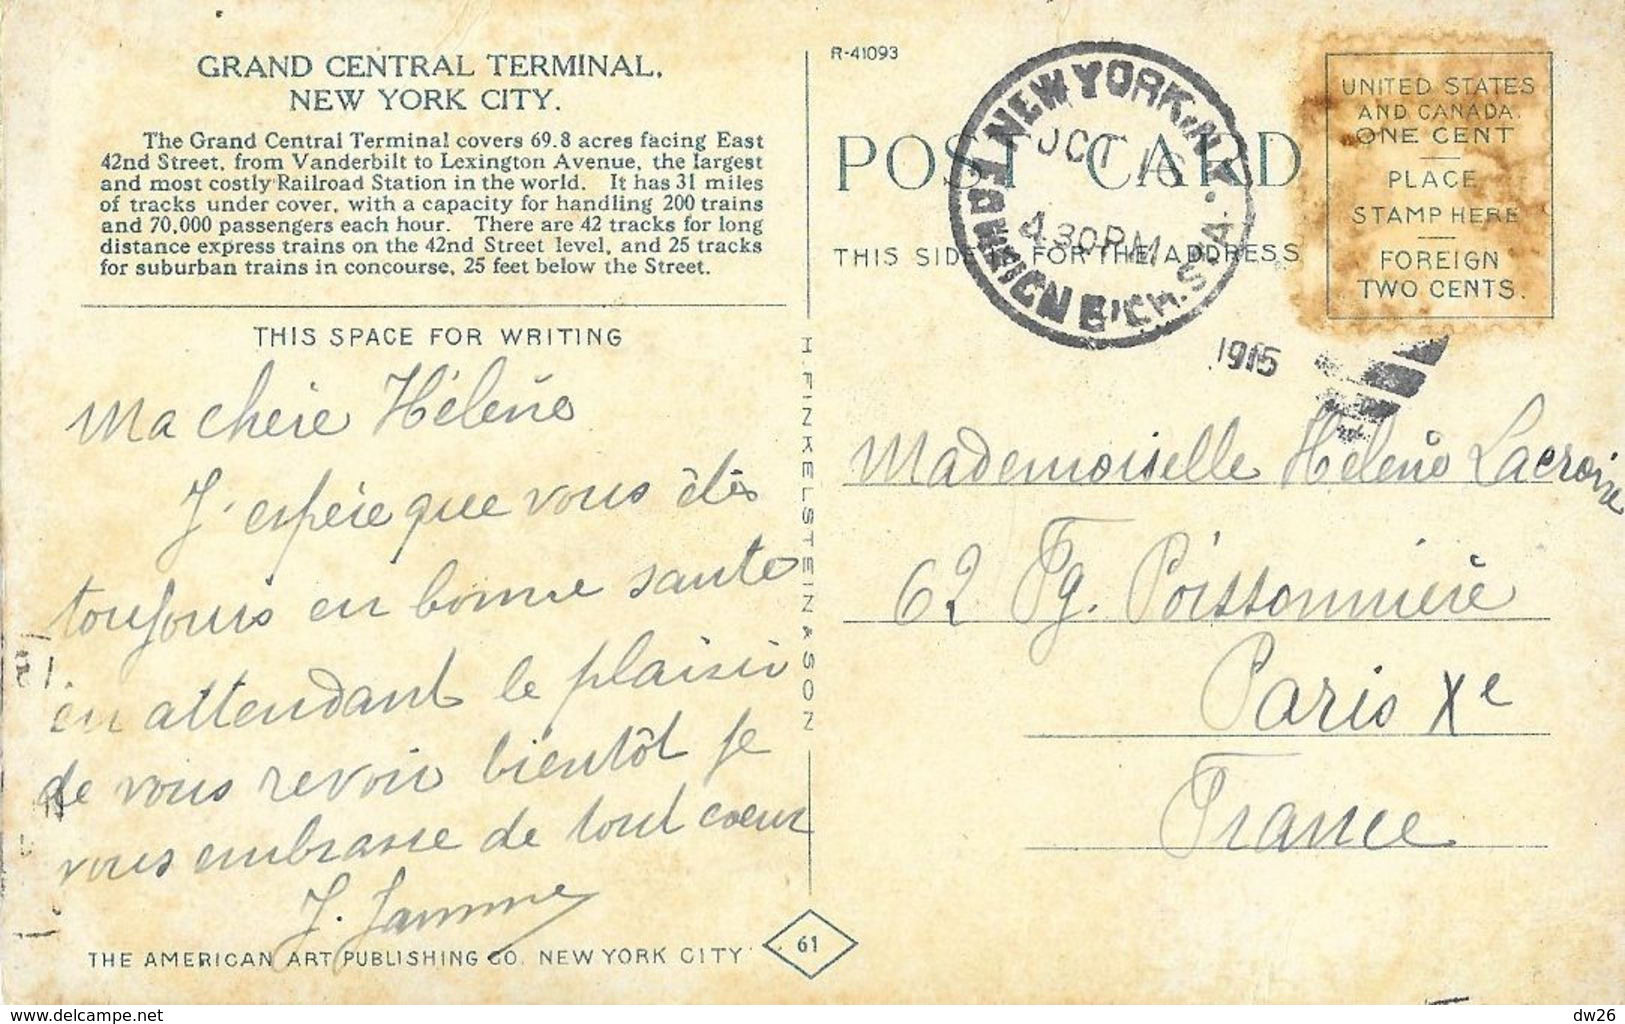 GRAND CENTRAL TERMINAL,
NEW YORK CITY.
The Grand Central Terminal covers 69.8 acres facing East
42nd Street, from Vanderbilt to Lexington Avenue, the largest
and most costly Railroad Station in the world. It has 31 miles
of tracks under cover, with a capacity for handling 200 trains
and 70,000 passengers each hour. There are 42 tracks for long
distance express trains on the 42nd Street level, and 25 tracks
for suburban trains in concourse, 25 feet below the Street.
THIS SPACE FOR WRITING
Ma chère Hélène
J'espère que vous êtes
toujours en bonne santé
en attendant le plaisir
de vous revoir bientôt je
vous embrasse de tout coeur
J. Jamme
THE AMERICAN ART PUBLISHING CO. NEW YORK CITY
H. FINKELSTEIN & SON
61
R-41093
POST CARD
THIS SIDE FOR THE ADDRESS
NEW YORK, N.Y.
OCT 16
4.30 PM
FOREIGN E'CH. STA.
1915
UNITED STATES
AND CANADA.
ONE CENT
PLACE
STAMP HERE
FOREIGN
TWO CENTS.
Mademoiselle Hélène Lacroix
62 Fg. Poissonnière
Paris Xe
France
www.delcampe.net
dw26